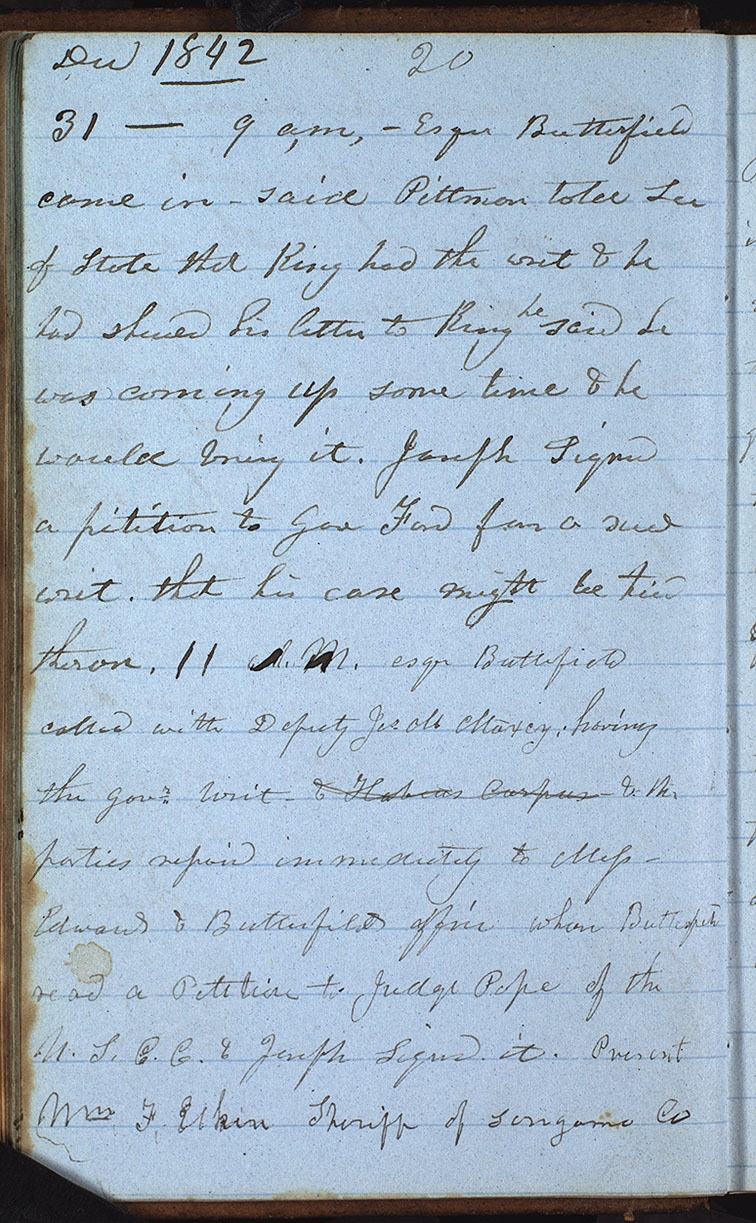 Dec 1842 20
31 — 9 a,m, - Esqr Butterfield
came in - said Pittman told Sec
of State that King had the writ & he
had shewed his letter to King he said he
was coming up some time & he
would bring it. Joseph Signed
a pitition to Gov Ford for a new
writ. that his case might be tried
theron. 11 A.M. esqr Butterfield
called with Deputy Jacob Maxcy, having
the govr. writ - & Habeus Corpus - & the
parties repaird immediately to Mess-
Edwards & Butterfields office when Butterfield
read a Petition to Judge Pope of the
U. S. C. C. & Joseph Signed it. Present
Wm F. Elkin Sheriff of Sangamo Co